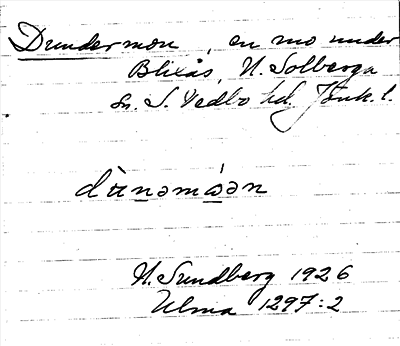 Dundermon, en mo under
Blixås, N. Solberga
sn. S. Vedbo hd. Jönk. l.
dùnəmóən
H. Sundberg 1926
Ulma 1297:2